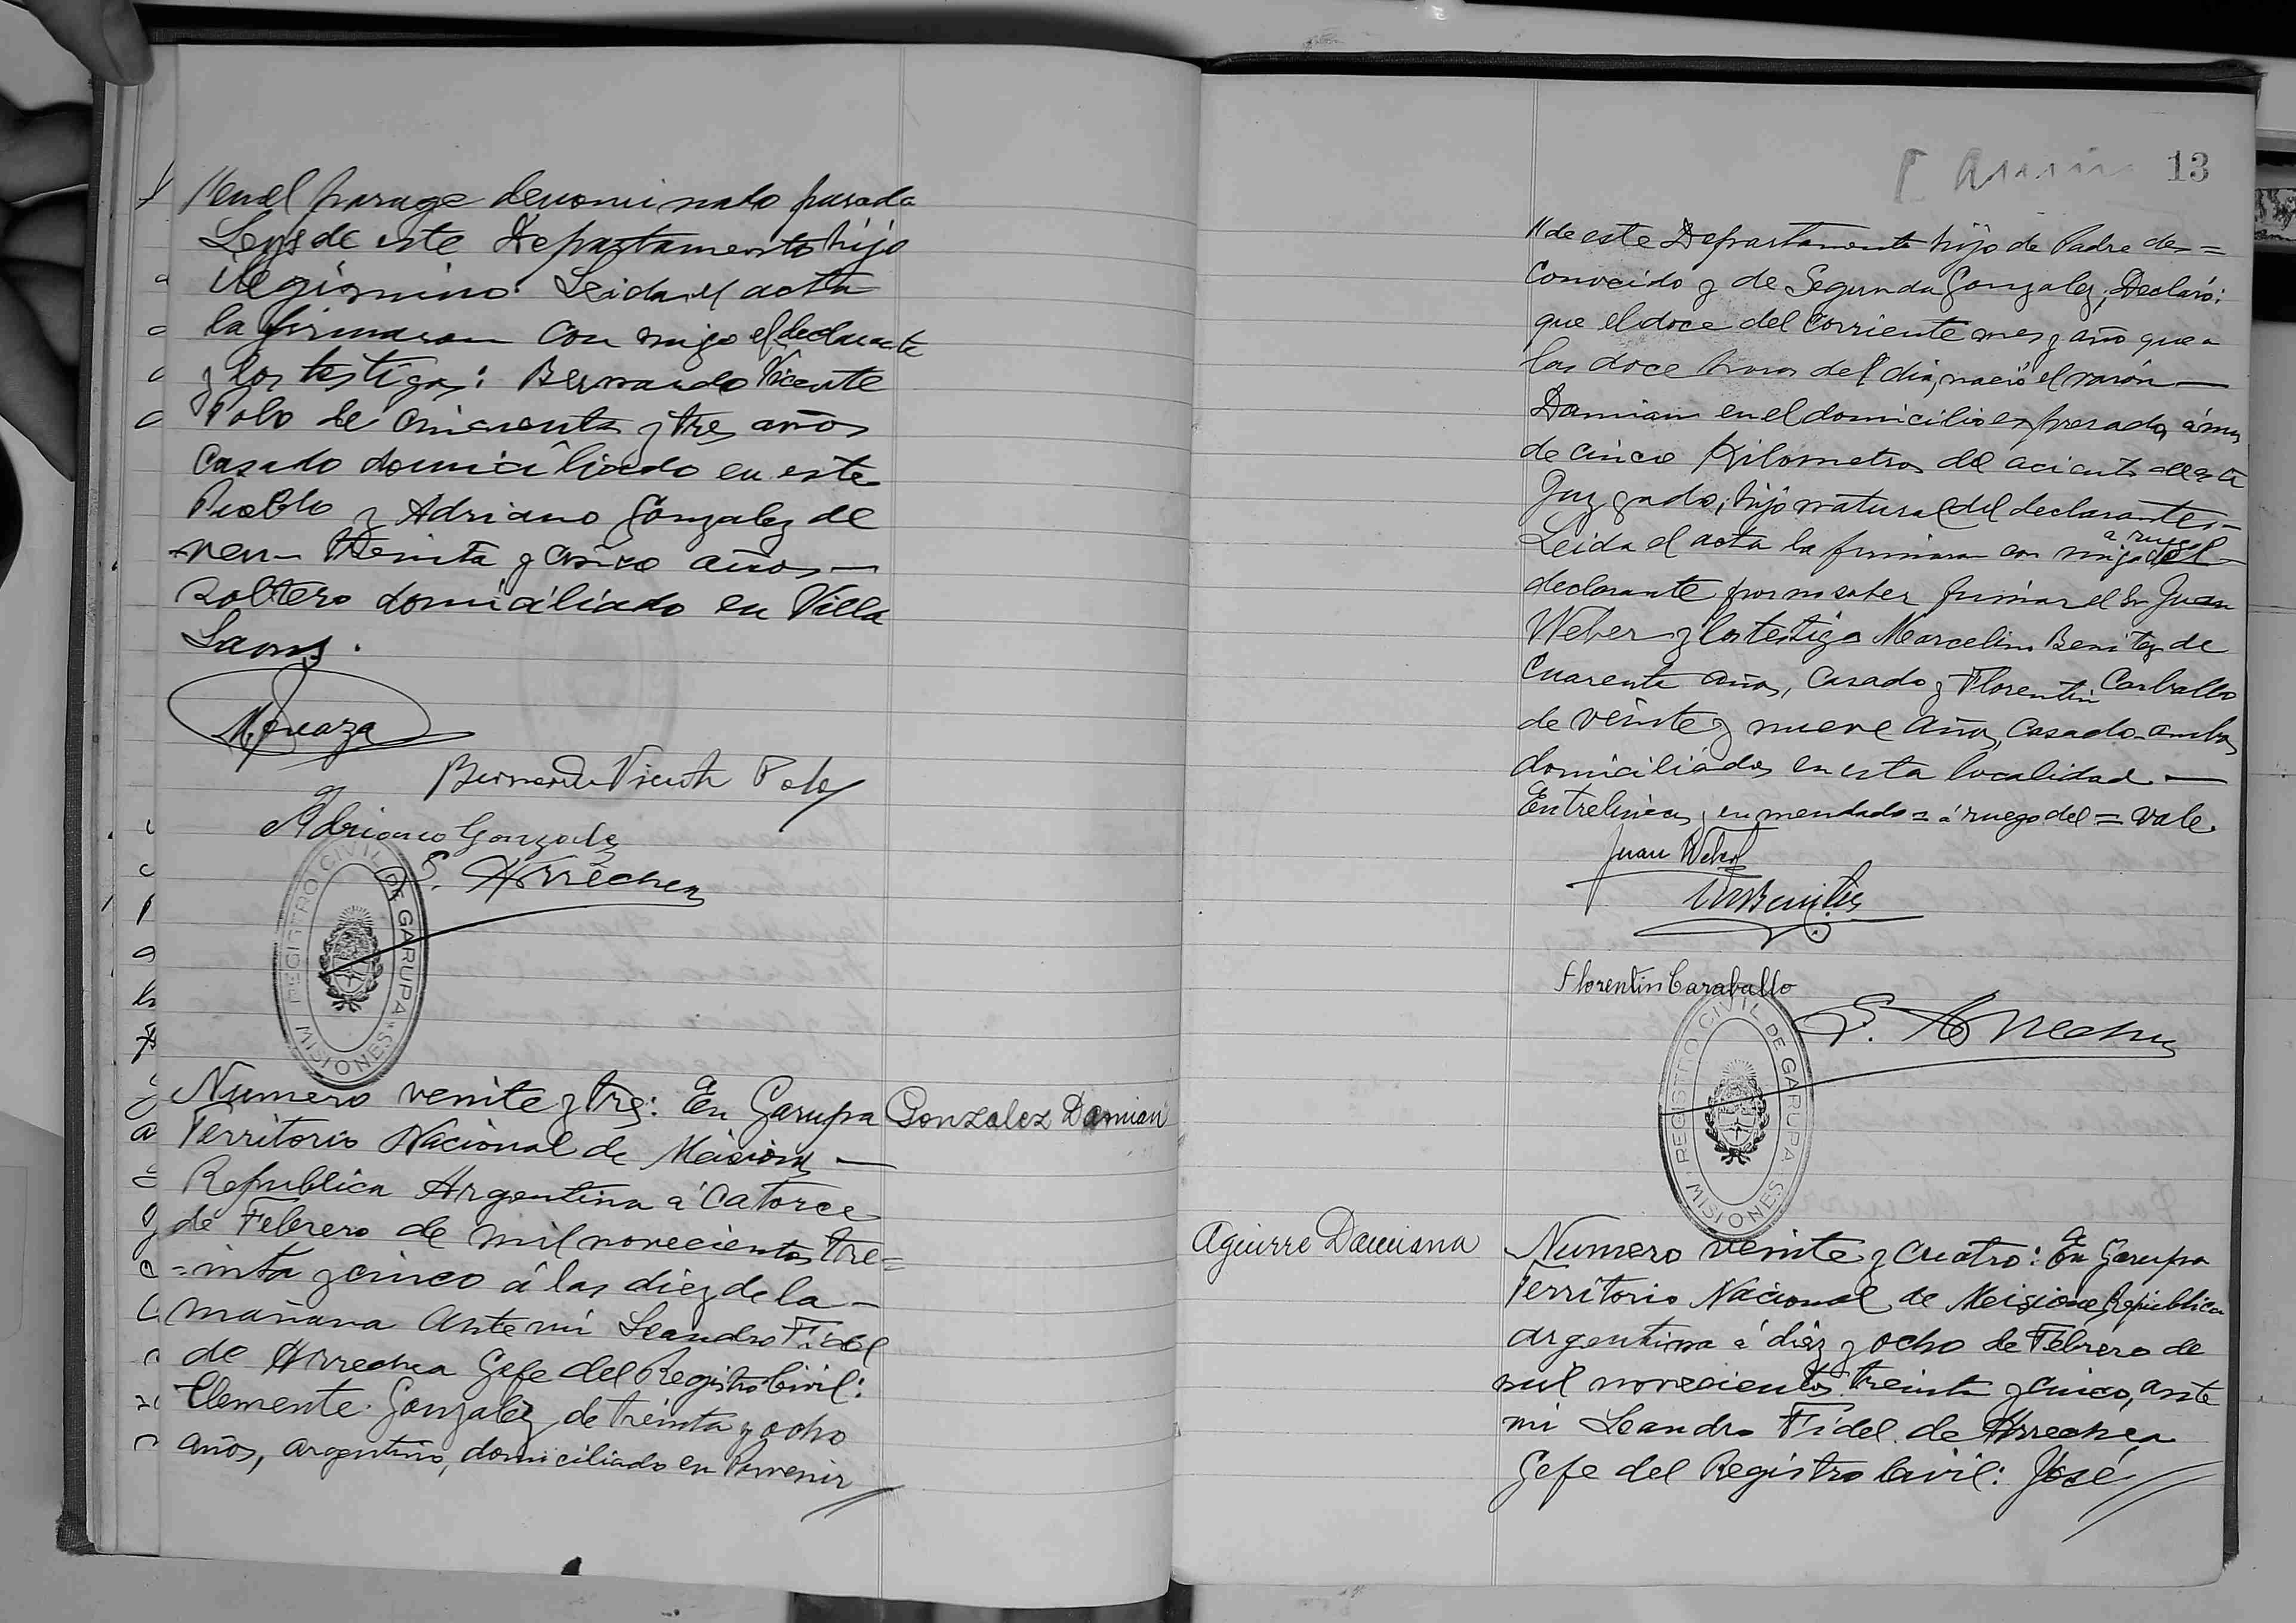 "en el parage denominado parada
Leys de este Departamento hijo
Leida el acta
la firmaron con migo el declarante
y los testigos: Bernardo Vicente
Polo de cincuenta y tres años
casado domiciliado en este
Pueblo y Adriano Gonzalez de
treinta y cinco años —
soltero domiciliado en Villa
Lanus.
Bernardo Vicente Polo
Adriano Gonzalez
S. Arrechea
REGISTRO CIVIL DE GARUPA
MISIONES
Numero veinte y tres: En Garupa
Gonzalez Damian
Territorio Nacional de Misiones —
Republica Argentina á Catorce
de Febrero de mil novecientos tre=
=inta y cinco á las diez de la —
mañana Ante mi Leandro Fidel
de Arrechea Gefe del Registro Civil:
Clemente Gonzalez de treinta y ocho
años, argentino, domiciliado en Porvenir
13
"de este Departamento hijo de Padre des=
conocido y de Segunda Gonzalez, Declaró:
que el doce del corriente mes y año que a
las doce horas del dia, nació el varón —
Damian en el domicilio expresado, á mas
de cinco Kilometros del aciento de este
Juzgado; hijo natural del declarante. —
a ruego
Leida el acta la firmaron con migo del
declarante por no saber firmar el Sr Juan
Weber y los testigos Marcelino Benitez de
Cuarenta años, Casado y Florentin Carballo
de veinte y nueve años, casado ambos
domiciliados en esta localidad. —
Entrelineas y enmendado = á ruego del = vale.
Juan Weber
M Benitez
Florentin Caraballo
S. Arrechea
REGISTRO CIVIL DE GARUPA
MISIONES
Aguirre Damiana
Numero veinte y cuatro: En Garupa
Territorio Nacional de Misiones Republica
argentina á diez y ocho de Febrero de
mil novecientos treinta y cinco, ante
mi Leandro Fidel de Arrechea
Gefe del Registro Civil: José